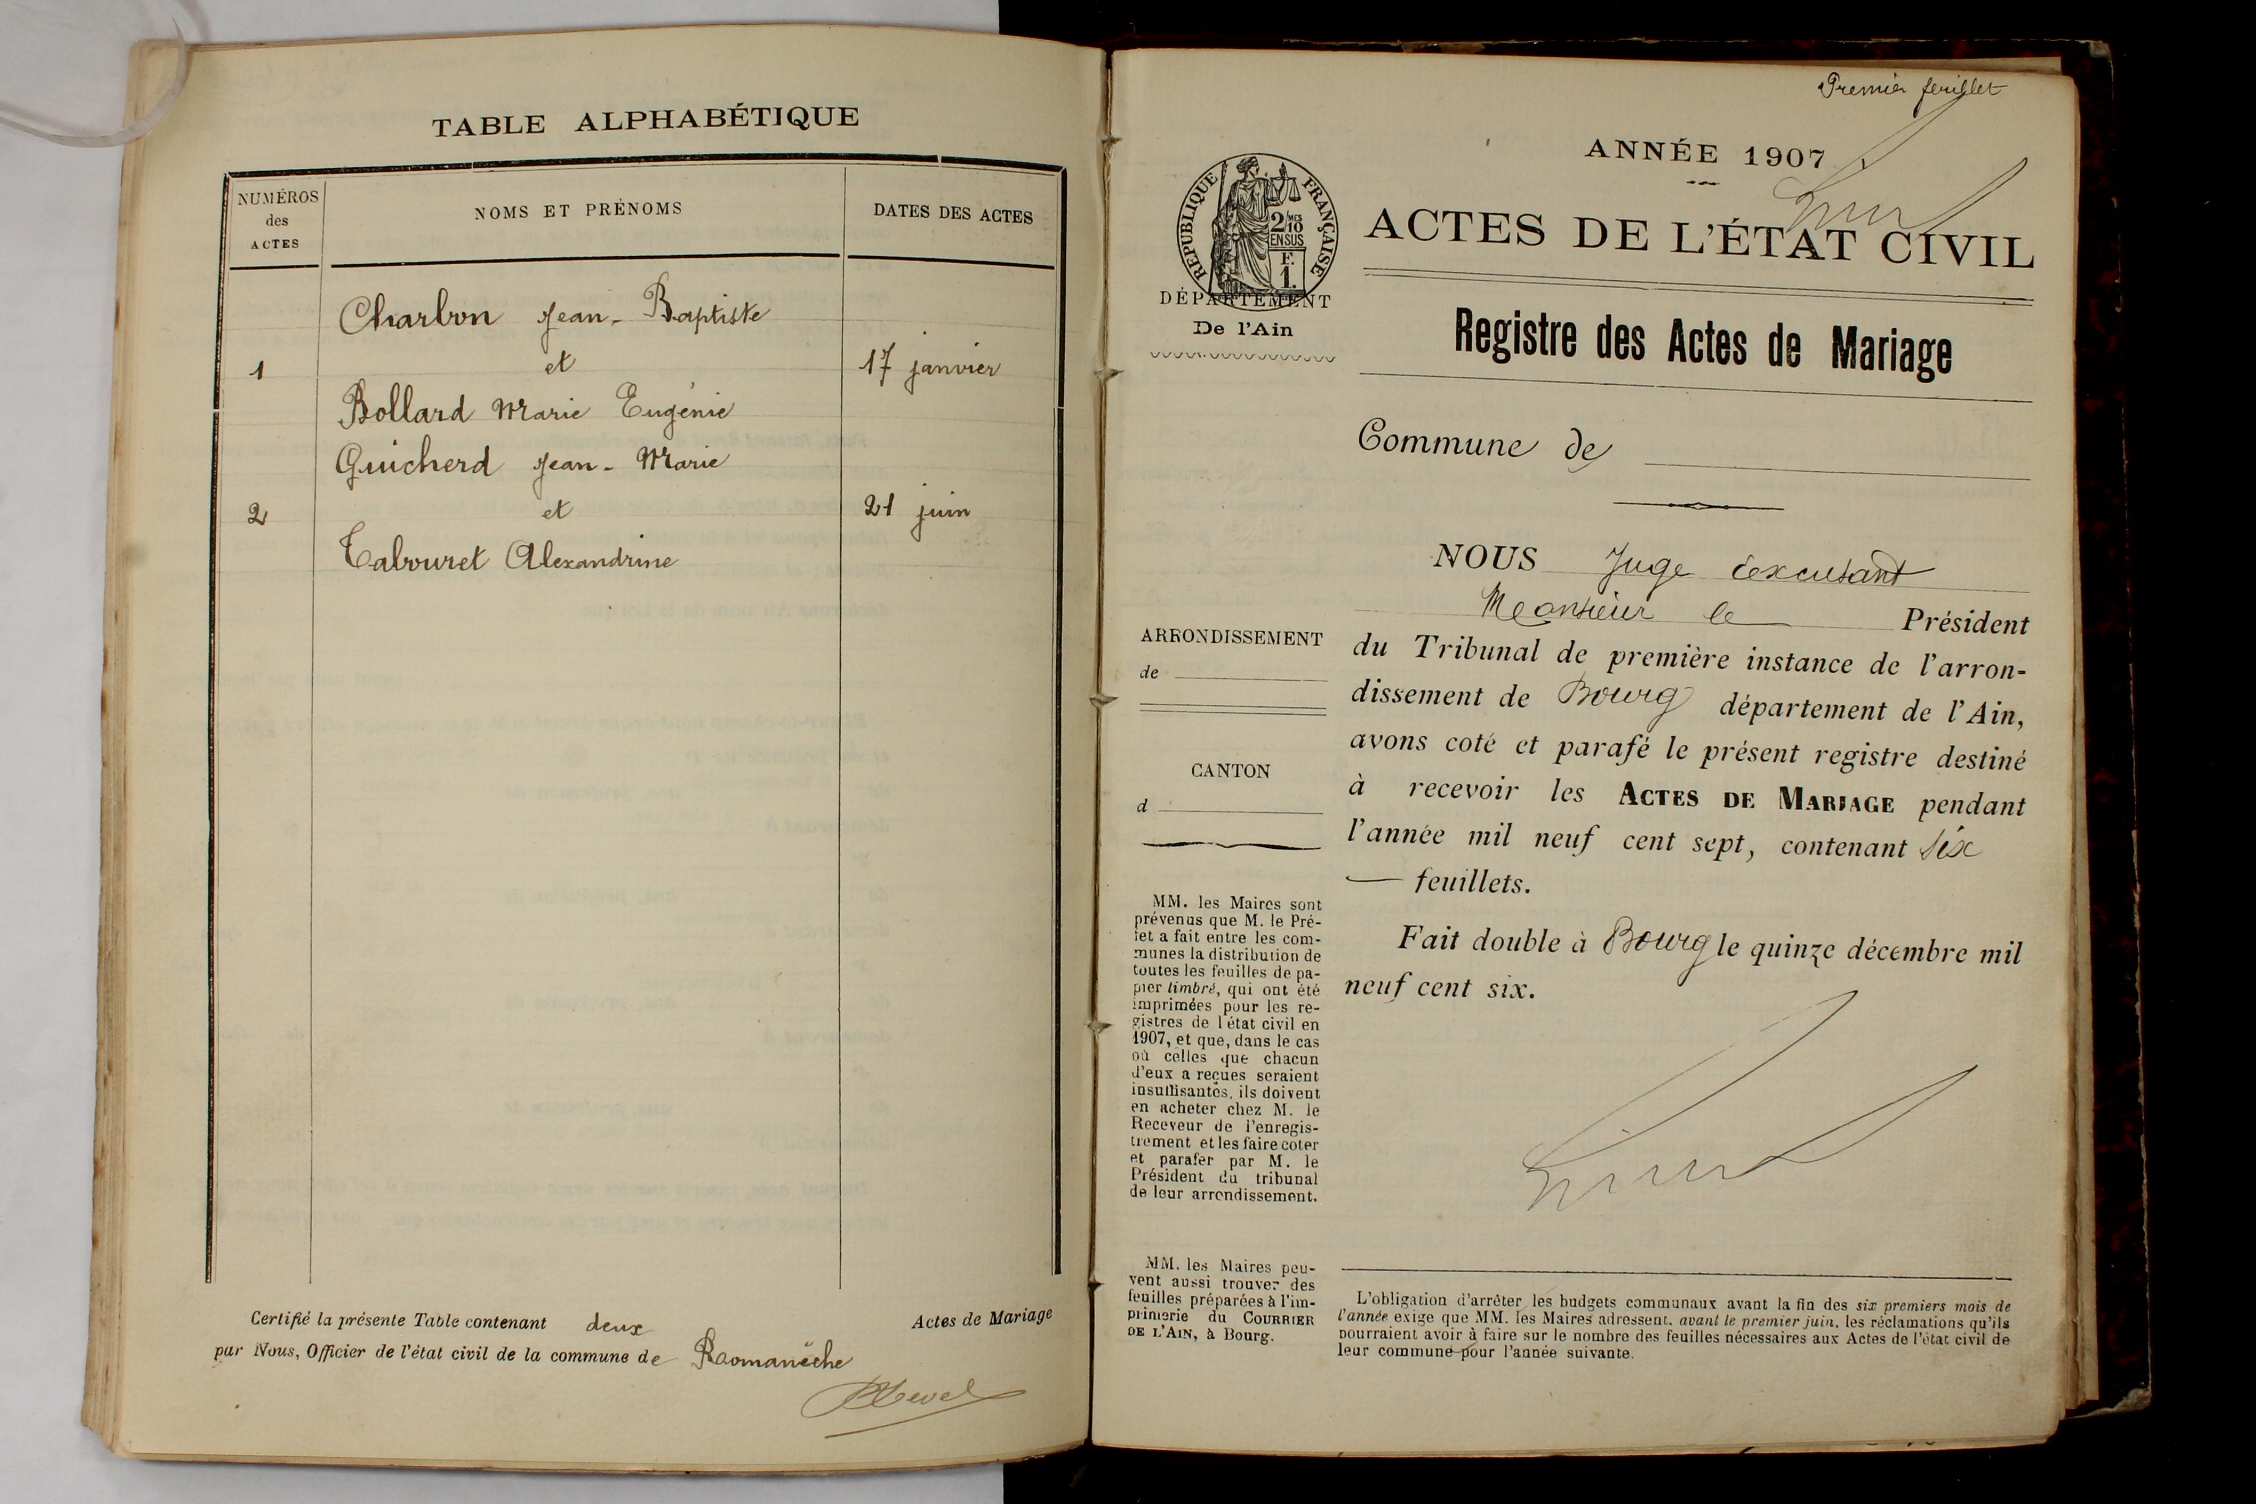 TABLE ALPHABÉTIQUE
NUMÉROS
des
ACTES
NOMS ET PRÉNOMS
DATES DES ACTES
Charbon Jean-Baptiste
1 et 17 janvier
Bollard Marie Eugénie
Guicherd Jean-Marie
2 et 21 juin
Tabouret Alexandrine
Certifié la présente Table contenant deux Actes de Mariage
par Nous, Officier de l'état civil de la commune de Romanèche
Premier feuillet
ANNÉE 1907
RÉPUBLIQUE FRANÇAISE
2/10 MES
EN SUS
F.
1.
ACTES DE L'ÉTAT CIVIL
DÉPARTEMENT
De l'Ain
Registre des Actes de Mariage
Commune de
NOUS Juge
Monsieur le Président
du Tribunal de première instance de l'arron-
dissement de Bourg département de l'Ain,
avons coté et parafé le présent registre destiné
à recevoir les ACTES DE MARIAGE pendant
l'année mil neuf cent sept, contenant six
feuillets.
Fait double à Bourg le quinze décembre mil
neuf cent six.
ARRONDISSEMENT
de
CANTON
d
MM. les Maires sont
prévenus que M. le Pré-
fet a fait entre les com-
munes la distribution de
toutes les feuilles de pa-
pier timbré, qui ont été
imprimées pour les re-
gistres de l'état civil en
1907, et que, dans le cas
où celles que chacun
d'eux a reçues seraient
insuffisantes, ils doivent
en acheter chez M. le
Receveur de l'enregis-
trement et les faire coter
et parafer par M. le
Président du tribunal
de leur arrondissement.
MM. les Maires peu-
vent aussi trouver des
feuilles préparées à l'im-
primerie du COURRIER
DE L'AIN, à Bourg.
L'obligation d'arrêter les budgets communaux avant la fin des six premiers mois de
l'année exige que MM. les Maires adressent, avant le premier juin, les réclamations qu'ils
pourraient avoir à faire sur le nombre des feuilles nécessaires aux Actes de l'état civil de
leur commune pour l'année suivante.